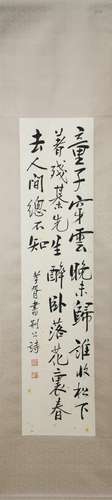 童子穿雲晚未歸誰收松下
著殘棊先生醉臥落花裏春
去人間總不知
書荆公詩